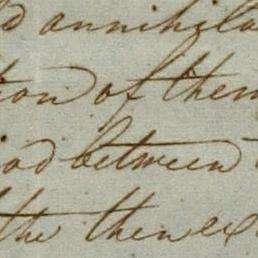 d annihila
tion of them
iod between
the then ex